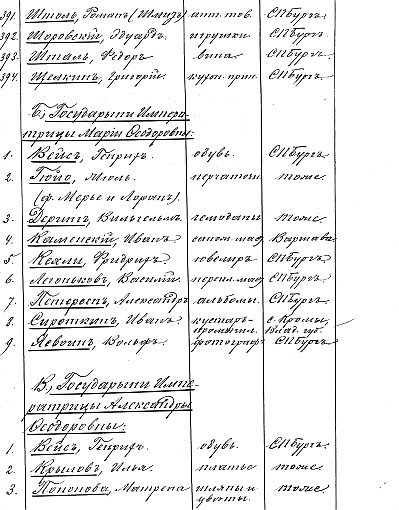 391. Штоль, Романъ (Шмидъ) апт. тов. СПбургъ.
392. Шоровскій, Эдуардъ. игрушки. СПбургъ.
393. Шталь, Ѳедоръ вина. СПбургъ.
394. Щелкинъ, Григорій. кухон. прин. СПбургъ.
Б., Государыни Импера-
трицы Маріи Ѳеодоровны:
1. Вейсъ, Генрихъ. обувь. СПбургъ.
2. Гюйо, Милль. перчатки тоже.
(ф. Мерье и Лоранъ).
3. Дерингъ, Вильгельмъ. чемоданы тоже.
4. Каменскій, Иванъ сапож. маст. Варшава.
5. Кехли, Фридрихъ ювелиръ СПбургъ.
6. Леоньковъ, Василій. перепл. маст. СПбургъ.
7. Петерсенъ, Александръ альбомы. СПбургъ.
8. Сироткинъ, Иванъ кустарь- с. Кромы,
промышл. Влад. губ.
9. Ясвоинъ, Вольфъ. фотографъ СПбургъ
В., Государыни Импе-
ратрицы Александры
Ѳеодоровны:
1. Вейсъ, Генрихъ. обувь. СПбургъ.
2. Крыловъ, Илья. платье тоже
3. Попонова, Матрена шляпы и тоже
цвѣты.